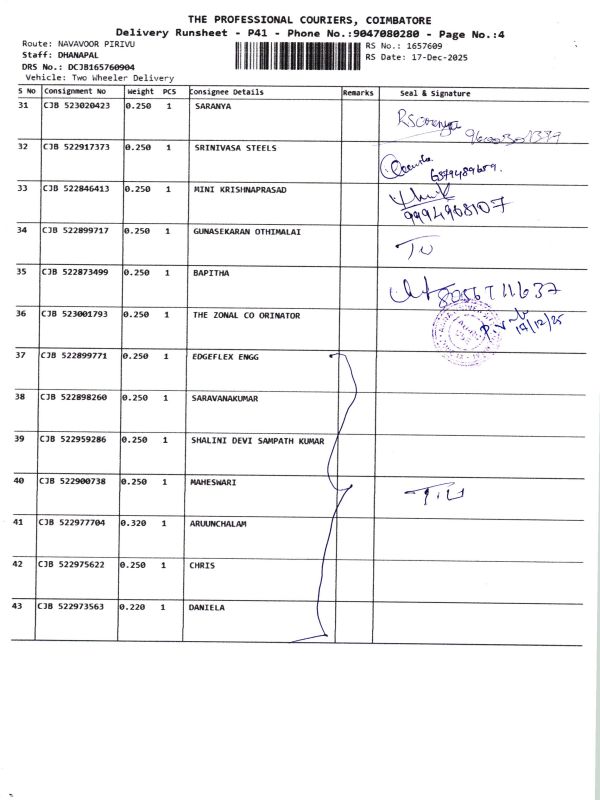 THE PROFESSIONAL COURIERS, COIMBATORE
Delivery Runsheet - P41 - Phone No.:9047080280 - Page No.:4
Route: NAVAVOOR PIRIVU
RS No.: 1657609
Staff: DHANAPAL
RS Date: 17-Dec-2025
DRS No.: DCJB165760904
Vehicle: Two Wheeler Delivery
S No Consignment No Weight PCS Consignee Details Remarks Seal & Signature
31 CJB 523020423 0.250 1 SARANYA
32 CJB 522917373 0.250 1 SRINIVASA STEELS
6379489659.
33 CJB 522846413 0.250 1 MINI KRISHNAPRASAD
9994968107
34 CJB 522899717 0.250 1 GUNASEKARAN OTHIMALAI
35 CJB 522873499 0.250 1 BAPITHA
8056711637
36 CJB 523001793 0.250 1 THE ZONAL CO ORINATOR
37 CJB 522899771 0.250 1 EDGEFLEX ENGG
38 CJB 522898260 0.250 1 SARAVANAKUMAR
39 CJB 522959286 0.250 1 SHALINI DEVI SAMPATH KUMAR
40 CJB 522900738 0.250 1 MAHESWARI
41 CJB 522977704 0.320 1 ARUUNCHALAM
42 CJB 522975622 0.250 1 CHRIS
43 CJB 522973563 0.220 1 DANIELA